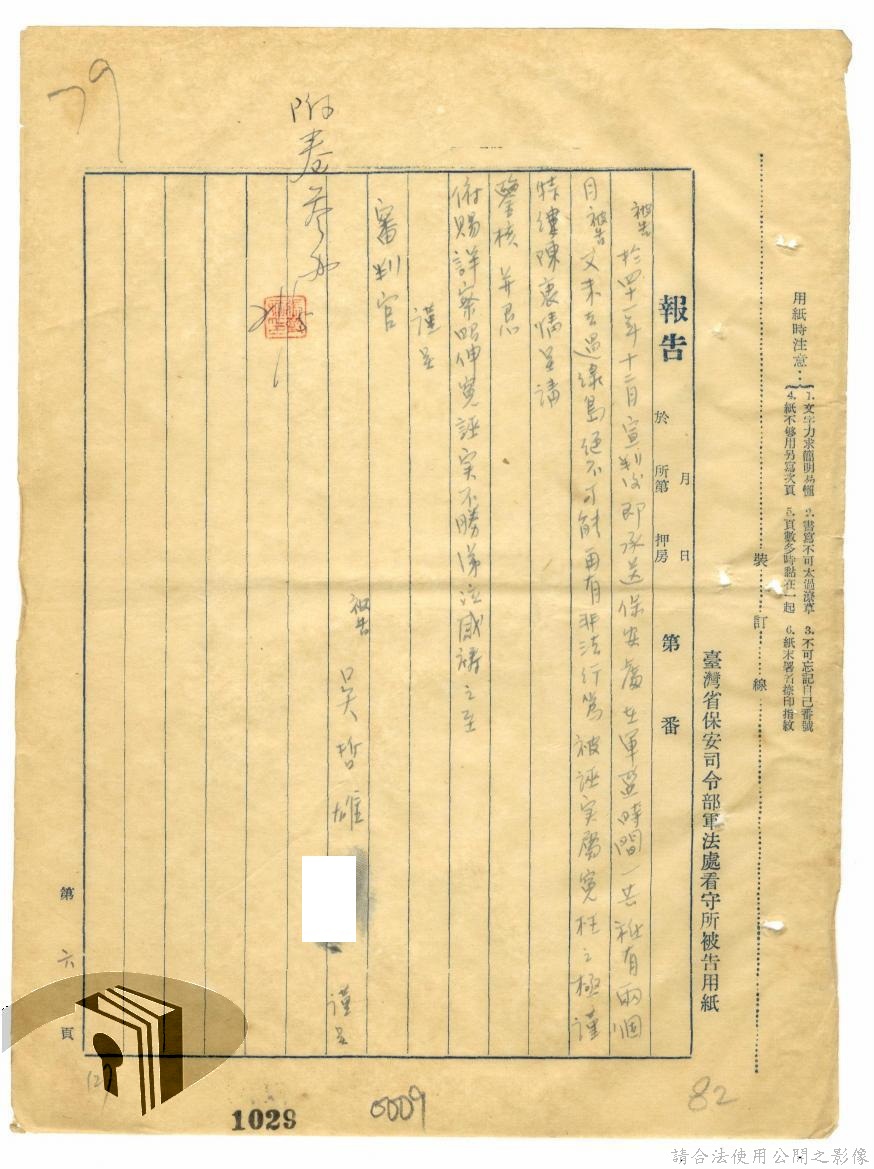 用紙時注意：
1. 文字力求簡明易懂
2. 書寫不可太過潦草
3. 不可忘記自己番號
4. 紙不够用另寫次頁
5. 頁數多時黏在一起
6. 紙末署名捺印指紋
裝訂線
臺灣省保安司令部軍法處看守所被告用紙
報告 於 月 日 所第 押房 第 番
被告於四十一年十二月宣判後即承送保安處在軍監時間一共祇有兩個
月被告文未去過綠島絕不可能再有非法行為被誣実屬冤枉之極謹
特縷陳衷情呈請
鑒核 并恳
俯賜詳察昭伸冤誣実不勝涕泣感禱之至
謹呈
審判官
被告 吳哲雄 謹呈
附卷
79
第六頁
(12)
1029
0009
82
請合法使用公開之影像